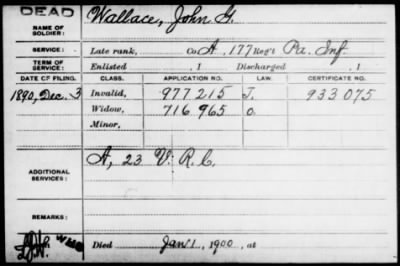 DEAD
NAME OF SOLDIER: Wallace, John G.
SERVICE: Late rank, Co A, 177 Reg't Pa. Inf
TERM OF SERVICE: Enlisted , 1 Discharged , 1
DATE OF FILING. CLASS. APPLICATION NO. LAW. CERTIFICATE NO.
1890, Dec. 3 Invalid, 977215 J. 933075
Widow, 716965 O.
Minor,
ADDITIONAL SERVICES: A, 23 V. R. C.
REMARKS:
Died Jan 1, 1900, at